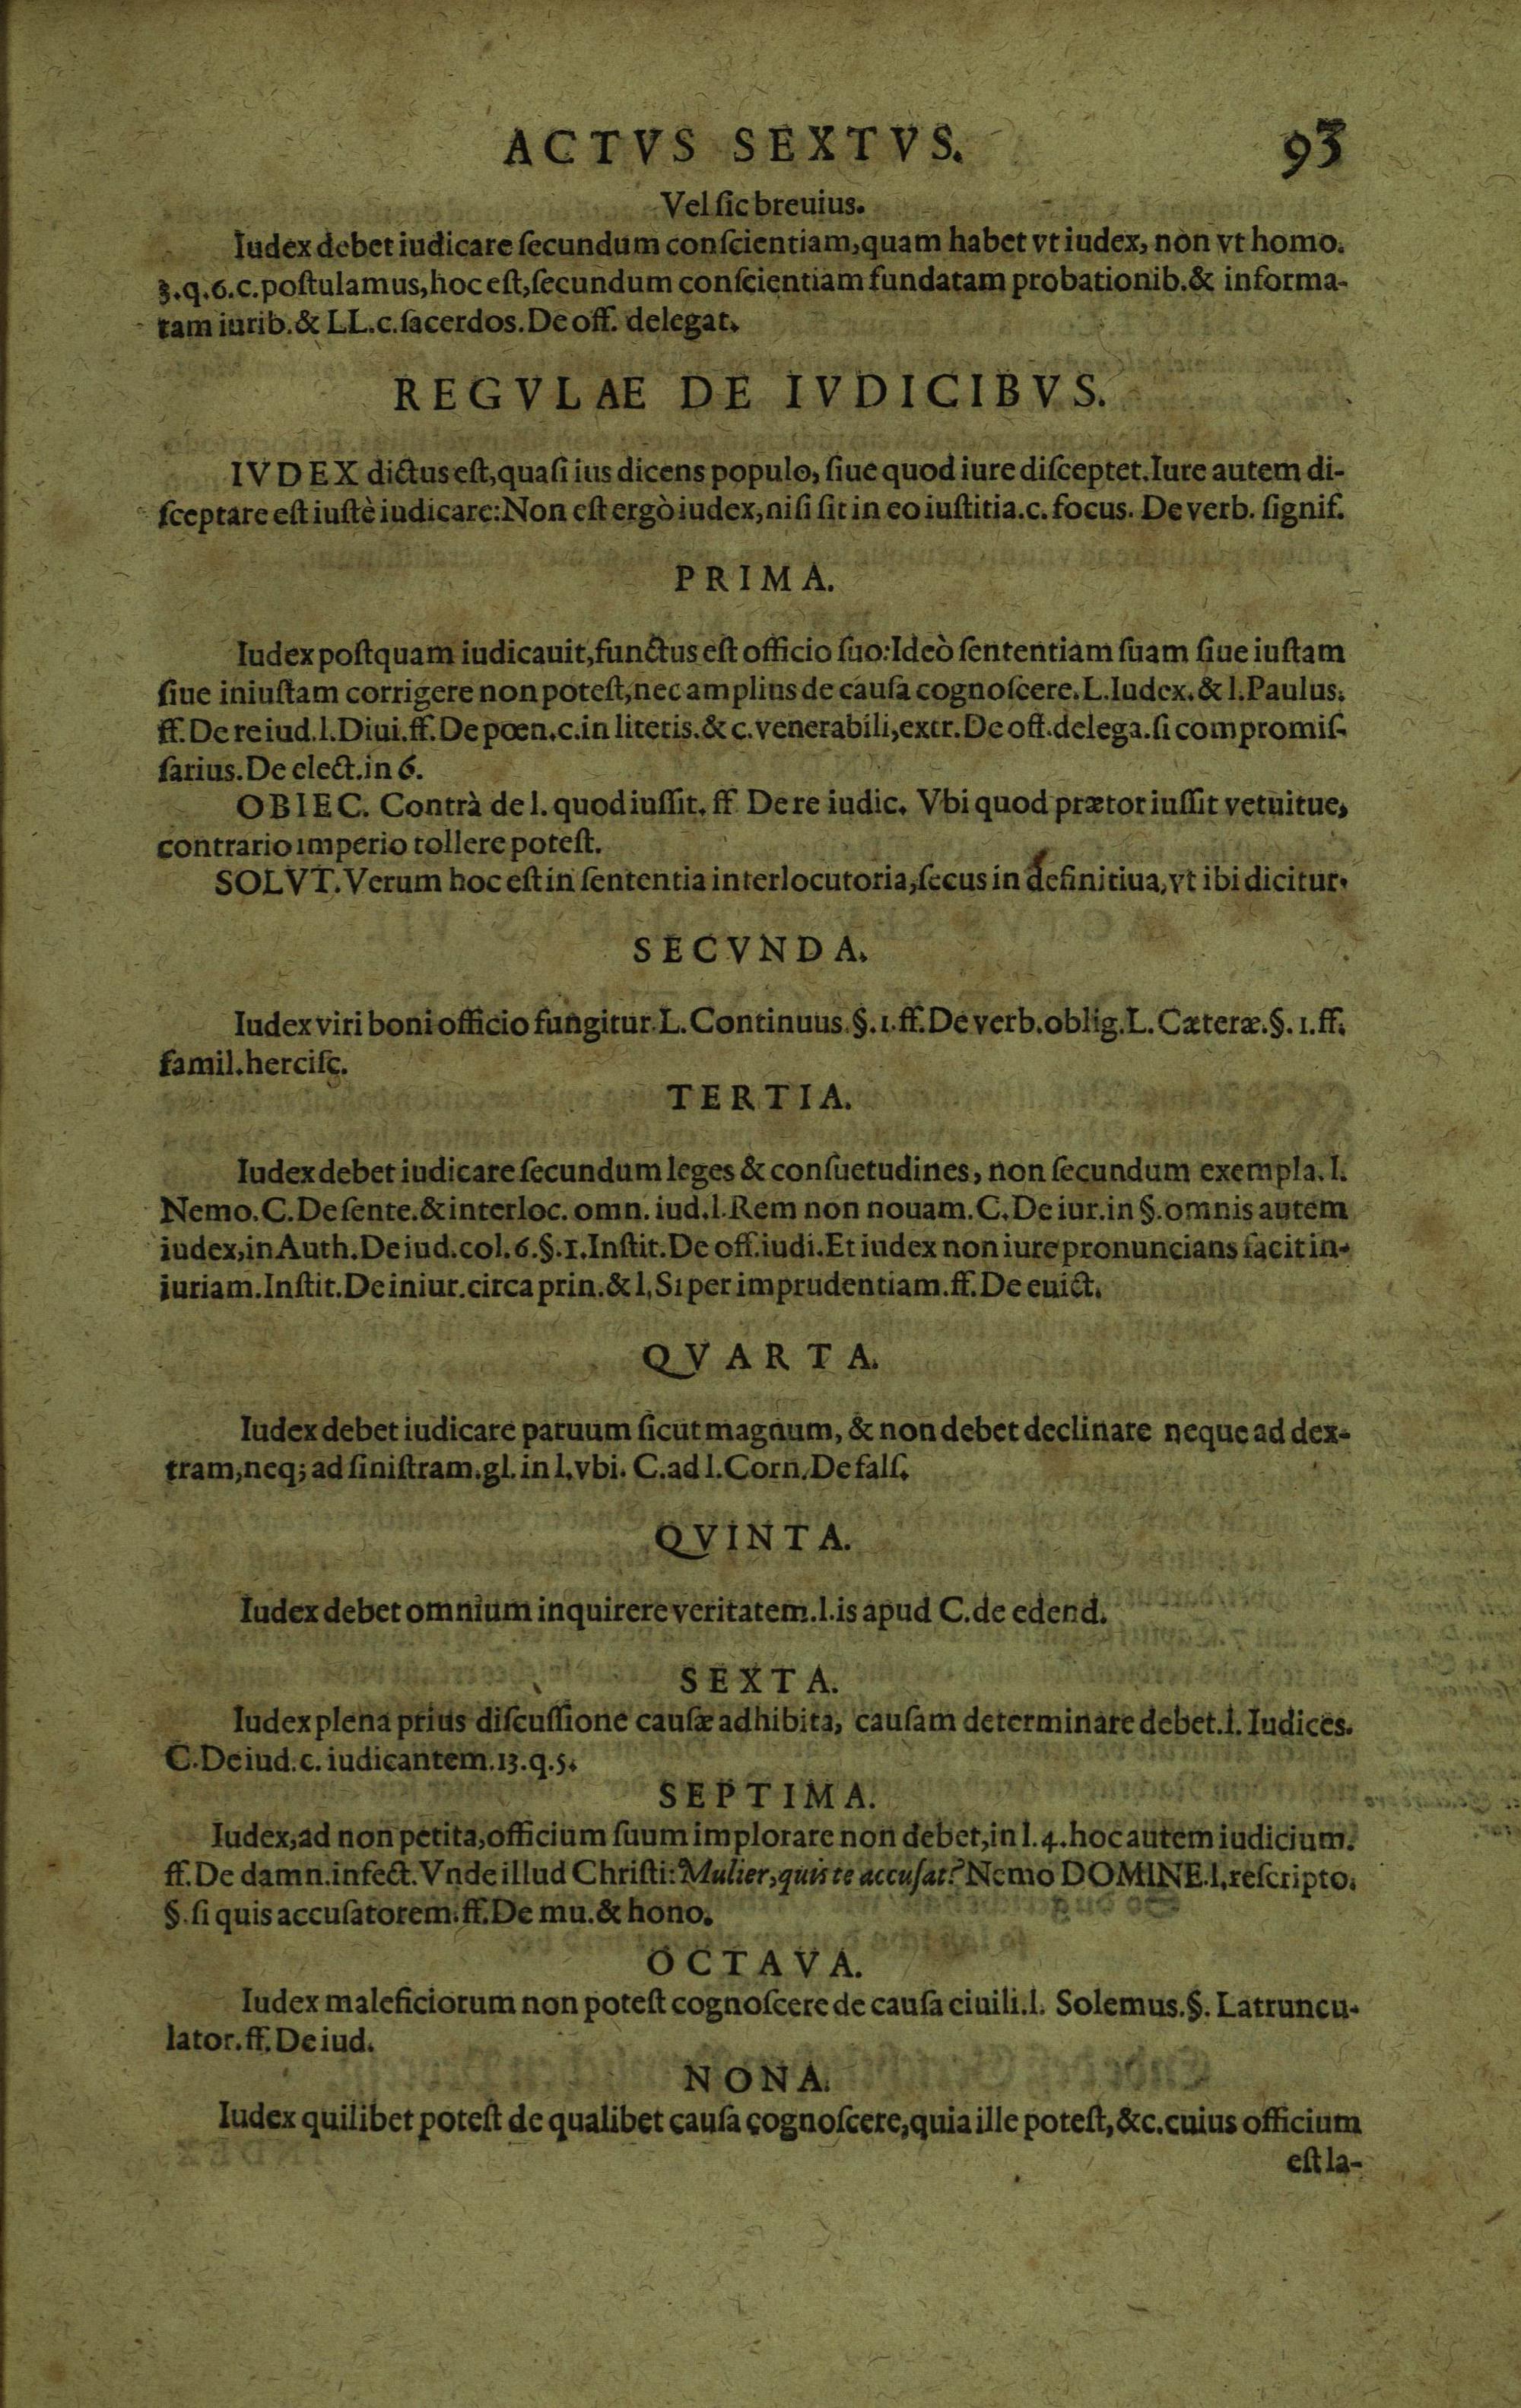 ACTVS SEXTVS. 93
Vel ſic breuius.
Iudex debet iudicare ſecundum conſcientiam, quam habet vt iudex, non vt homo.
3.q.6.c.poſtulamus, hoc eſt, ſecundum conſcientiam fundatam probationib. & informa-
tam iurib. & LL.c. ſacerdos. De off. delegat.
REGVLAE DE IVDICIBVS.
IVDEX dictus eſt, quaſi ius dicens populo, ſiue quod iure diſceptet. Iure autem di-
ſceptare eſt iuſtè iudicare: Non eſt ergò iudex, niſi ſit in eo iuſtitia. c. focus. De verb. ſignif.
PRIMA.
Iudex poſtquam iudicauit, functus eſt officio ſuo: Ideò ſententiam ſuam ſiue iuſtam
ſiue iniuſtam corrigere non poteſt, nec amplius de cauſa cognoſcere. L. Iudex. & l. Paulus.
ff. De re iud. l. Diui. ff. De pœn. c. in literis. & c. venerabili, extr. De off. delega. ſi compromiſ-
ſarius. De elect. in 6.
OBIEC. Contrà de l. quod iuſſit. ff De re iudic. Vbi quod prætor iuſſit vetuitue,
contrario imperio tollere poteſt.
SOLVT. Verum hoc eſt in ſententia interlocutoria, ſecus in definitiua, vt ibi dicitur.
SECVNDA.
Iudex viri boni officio fungitur. L. Continuus. §. 1. ff. De verb. oblig. L. Cæteræ. §. 1. ff.
famil. herciſc.
TERTIA.
Iudex debet iudicare ſecundum leges & conſuetudines, non ſecundum exempla. l.
Nemo. C. De ſente. & interloc. omn. iud. l. Rem non nouam. C. De iur. in §. omnis autem
iudex, in Auth. De iud. col. 6. §. 1. Inſtit. De off. iudi. Et iudex non iure pronuncians facit in-
iuriam. Inſtit. De iniur. circa prin. & l. Si per imprudentiam. ff. De euict.
QVARTA.
Iudex debet iudicare paruum ſicut magnum, & non debet declinare neque ad dex-
tram, neq; ad ſiniſtram. gl. in l. vbi. C. ad l. Corn. De falſ.
QVINTA.
Iudex debet omnium inquirere veritatem. l. is apud C. de edend.
SEXTA.
Iudex plena prius diſcuſſione cauſæ adhibita, cauſam determinare debet. l. Iudices.
C. De iud. c. iudicantem. 13. q. 5.
SEPTIMA.
Iudex, ad non petita, officium ſuum implorare non debet, in l. 4. hoc autem iudicium.
ff. De damn. infect. Vnde illud Chriſti: Mulier, quis te accuſat? Nemo DOMINE. l. reſcripto.
§. ſi quis accuſatorem. ff. De mu. & hono.
OCTAVA.
Iudex maleficiorum non poteſt cognoſcere de cauſa ciuili. l. Solemus. §. Latruncu-
lator. ff. De iud.
NONA.
Iudex quilibet poteſt de qualibet cauſa cognoſcere, quia ille poteſt, &c. cuius officium
eſt la-